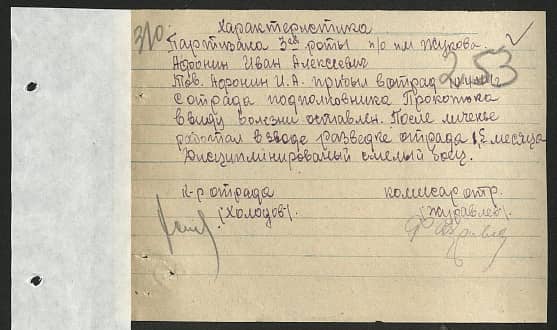 310.
Характеристика
Партизана 3ей роты п/о им Жукова.
Афонин Иван Алексеевич
Тов. Афонин И.А. прибыл в отряд
253
с отряда подполковника Прокопюка
ввиду болезни оставлен. После личенье
работал в взводе разведке отряда 1,5 месяца
Дисциплинированый смелый боец.
к-р отряда комиссар отр.
(Холодов). (Журавлев).